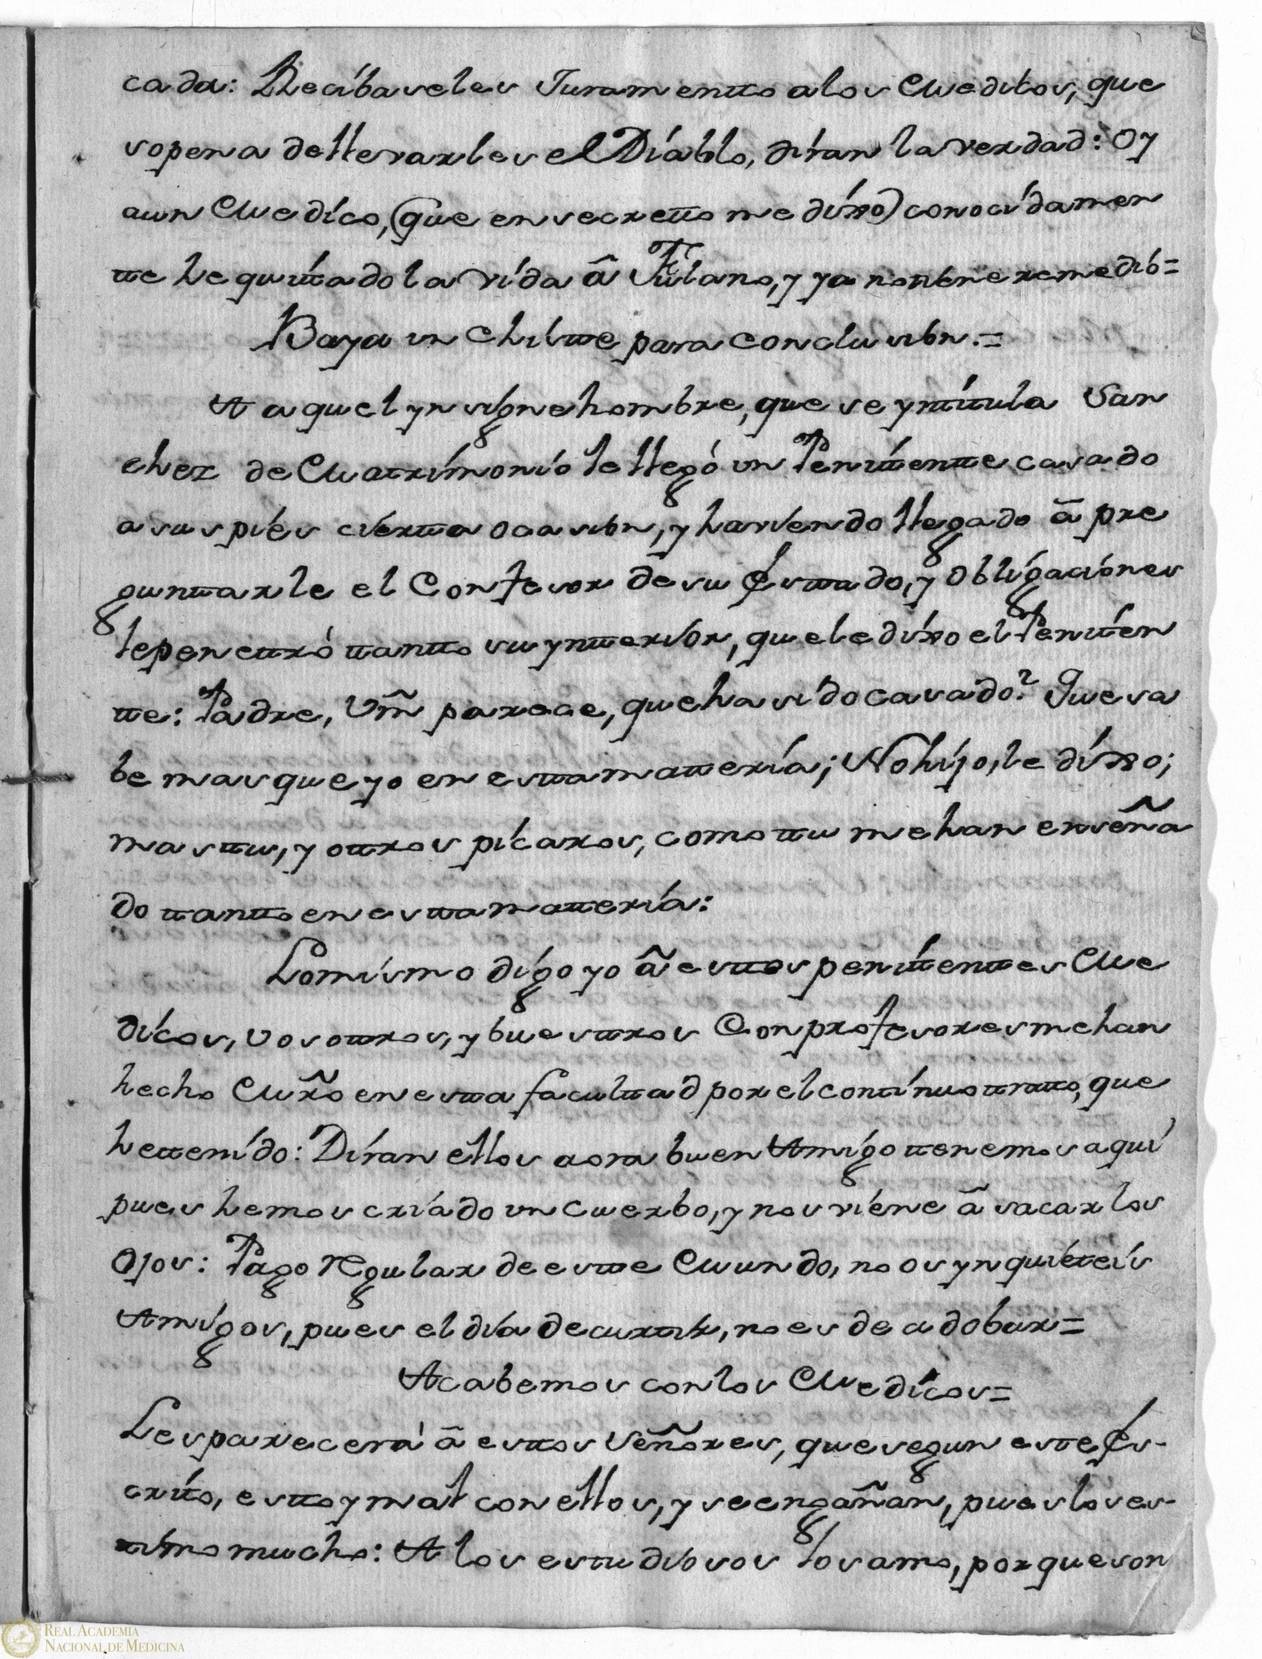 cada: Recibaseles Juramentto a los Medicos, que
sopena de llevarles el Diablo, diran la verdad: Oy
a un Medico, (que en secretto me dixo) conocidamen
tte he quittado la vida â Fulano, y ya no tiene remedio=
Baya un chistte para conclusion.=
A aquel ynsigne hombre, que se yntitula San
chez de Matrimonio le llegó un Penitentte casado
a sus pies ciertta ocasion, y haviendo llegado â pre
gunttarle el Confesor de su Esttado, y obligaciones
le penettró ttantto su yntterior, que le dixo el Peniten
tte: Padre, Vm̃ parece, que ha sido casado? Que sa
be mas que yo en estta matteria; No hijo, le dixo;
mas ttu, y ottros picaros, como ttu me han enseña
do ttantto en estta matteria:
Lo mismo digo yo â esttos penitenttes Me
dicos, vosottros, y buesttros Conprofesores me han
hecho Mr̃o en estta faculttad por el continuo tratto, que
he ttenido: Diran ellos aora buen Amigo ttenemos aqui
pues hemos criado un Cuerbo, y nos viene â sacar los
ojos: Pago regular de estte Mundo, no os ynquieteis
Amigos, pues el dia de curttir, no es de adobar=
Acabemos con los Medicos=
Les parecerá â esttos Señores, que segun estte Es-
crito, esttoy mal con ellos, y se engañan, pues los es-
timo mucho: A los estudiosos los amo, porque son
REAL ACADEMIA
NACIONAL DE MEDICINA